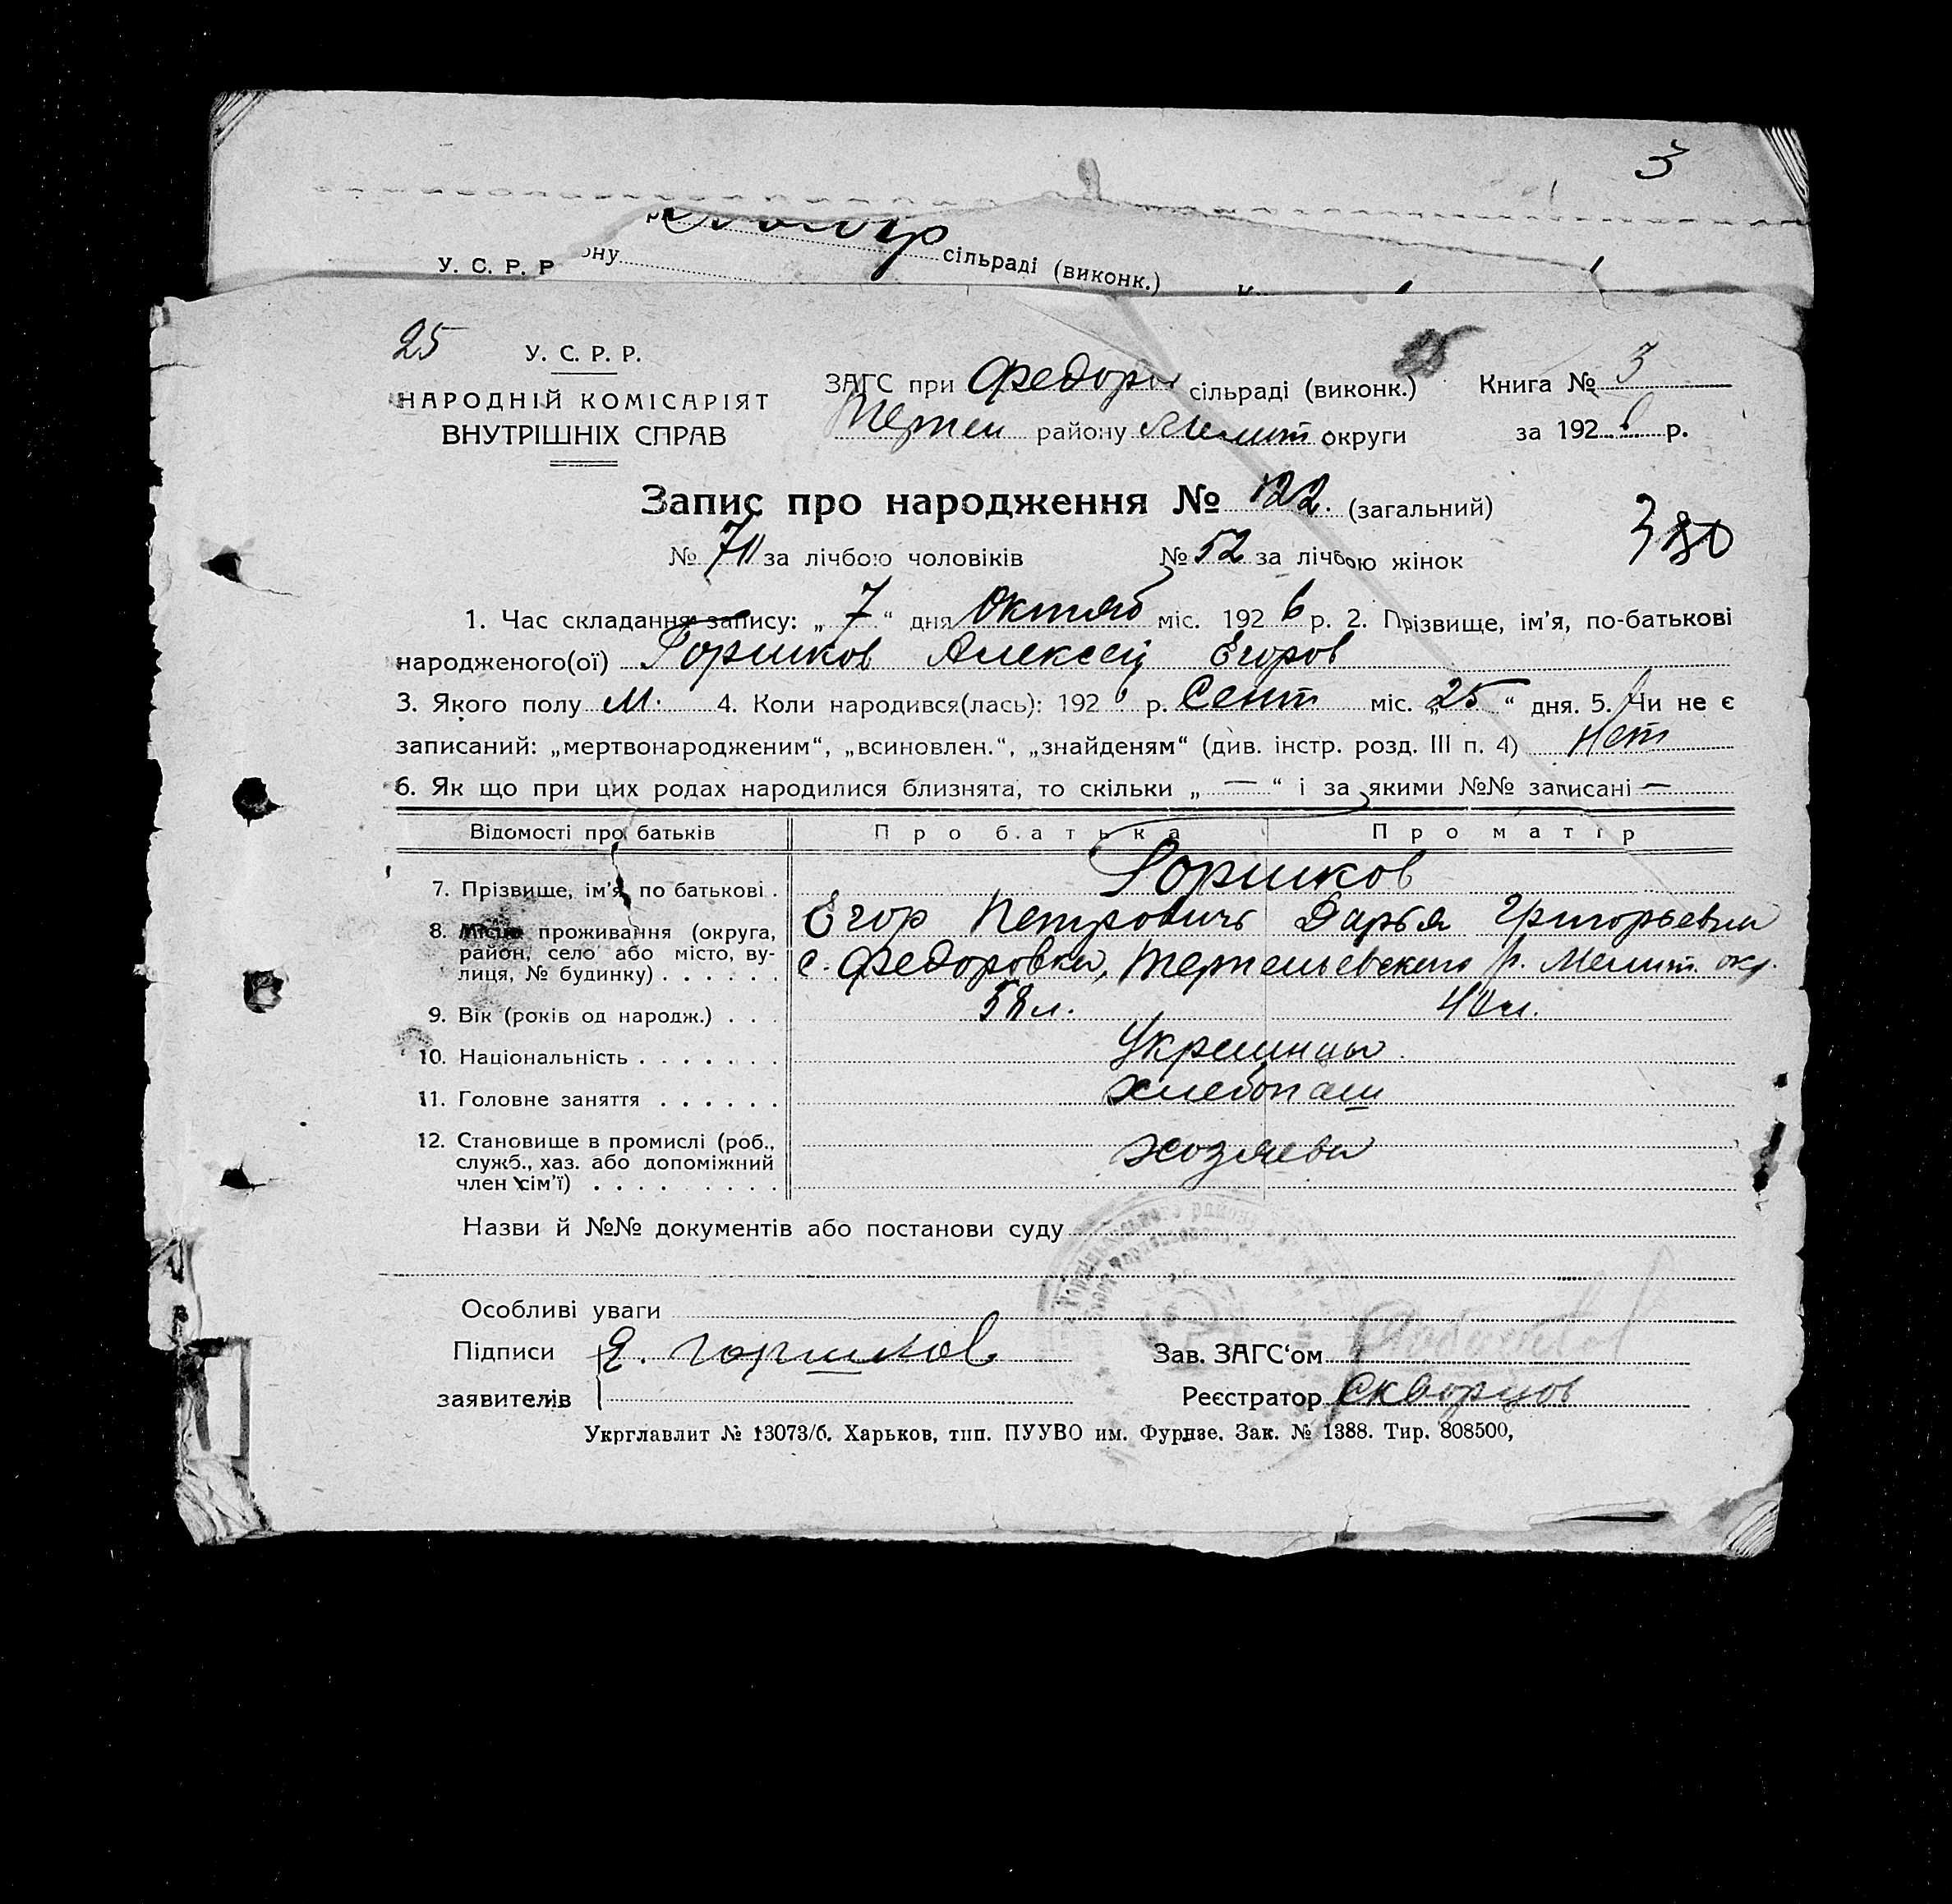 3
сільраді (виконк.)
У. С. Р. Р
ону
25
У. С. Р. Р.
НАРОДНІЙ КОМІСАРІЯТ
ВНУТРІШНІХ СПРАВ
ЗАГС при Федоров сільраді (виконк.) Книга № 3
району Мелит округи за 1926 р.
Запис про народження № 122. (загальний)
380
№ за лічбою чоловіків № 52 за лічбою жінок
1. Час складання запису: „7“ дня Октяб міс. 1926 р. 2. Прізвище, ім'я, по-батькові
народженого(ої) Горшков Алексей Егоров
3. Якого полу М. 4. Коли народився(лась): 1926 р. Сент міс. „25“ дня. 5. Чи не є
записаний: „мертвонародженим“, „всиновлен.“, „знайденям“ (див. інстр. розд. III п. 4) Нет
6. Як що при цих родах народилися близнята, то скільки „—“ і за якими №№ записані —
Відомості про батьків Про батька Про матір
7. Прізвище, ім'я, по батькові . Горшков
Егор Петровичъ Дарья Григорьевна
8. Місце проживання (округа, район, село або місто, ву-
лиця, № будинку) . . . . . . с. Федоровка, р. Мелит. окр.
9. Вік (років од народж.) . . . 58 л. 40 л.
10. Національність . . . . . . . Украинцы
11. Головне заняття . . . . . . хлебопаш
12. Становище в промислі (роб.,
служб., хаз. або допоміжний
член сім'ї) . . . . . . . . . хозяева
Назви й №№ документів або постанови суду
Особливі уваги
Підписи заявителів Е. Горшков
Зав. ЗАГС‘ом
Реєстратор Скворцов
Укрглавлит № 13073/б. Харьков, тип. ПУУВО им. Фурнзе. Зак. № 1388. Тир. 808500,